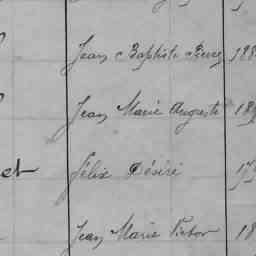 Jean Baptiste Pierre 188
Jean Marie Auguste 189
et Félix Désiré 179
Jean Marie Victor 18